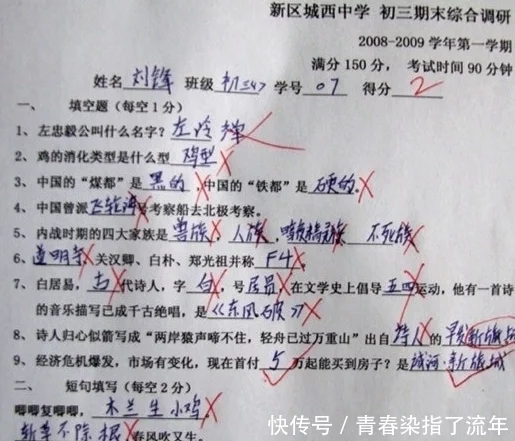 新区城西中学 初三期末综合调研
2008-2009 学年第一学期
满分 150 分， 考试时间 90 分钟
姓名 刘锋 班级 初三(4) 学号 07 得分 2
一、 填空题（每空 1 分）
1、左忠毅公叫什么名字？左冷禅
2、鸡的消化类型是什么型 鸡型
3、中国的“煤都”是 黑的，中国的“铁都”是 硬的。
4、中国曾派 飞轮海 号考察船去北极考察。
5、内战时期的四大家族是 兽族，人族，暗夜精灵族 不死族
6、道明寺、关汉卿、白朴、郑光祖并称 F4。
7、白居易，古 代诗人，字 白，号 居易，在文学史上倡导 五四 运动，他有一首诗
的音乐描写已成千古绝唱，是《东风破》
8、诗人归心似箭写成“两岸猿声啼不住，轻舟已过万重山”出自 诗人 的
9、经济危机爆发，市场有变化，现在首付 5 万起能买到房子？是
二、 短句填写（每空 2 分）
唧唧复唧唧，木兰生小鸡。
斩草不除根，春风吹又生。
快传号 / 青春染指了流年